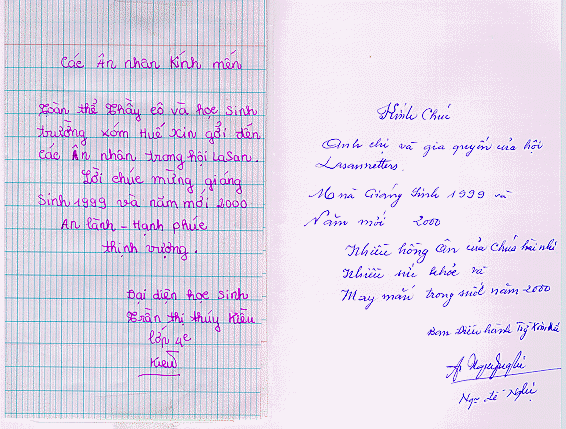 Các Ân nhân Kính mến
Toàn thể Thầy cô và học sinh
trường xóm Huế xin gởi đến
các Ân nhân trong hội Lasan.
Lời chúc mừng giáng
Sinh 1999 và năm mới 2000
An lành - Hạnh phúc
thịnh vượng.
Đại diện học sinh
Trần thị thúy Kiều
lớp 4e
Kiều
Kính Chúc
Anh chị và gia quyến của hội
Lasannetters.
Mùa Giáng Sinh 1999 và
Năm mới 2000
Nhiều hồng Ân của Chúa hài nhi
Nhiều sức khỏe và
May mắn trong suốt năm 2000
Ban Điều hành